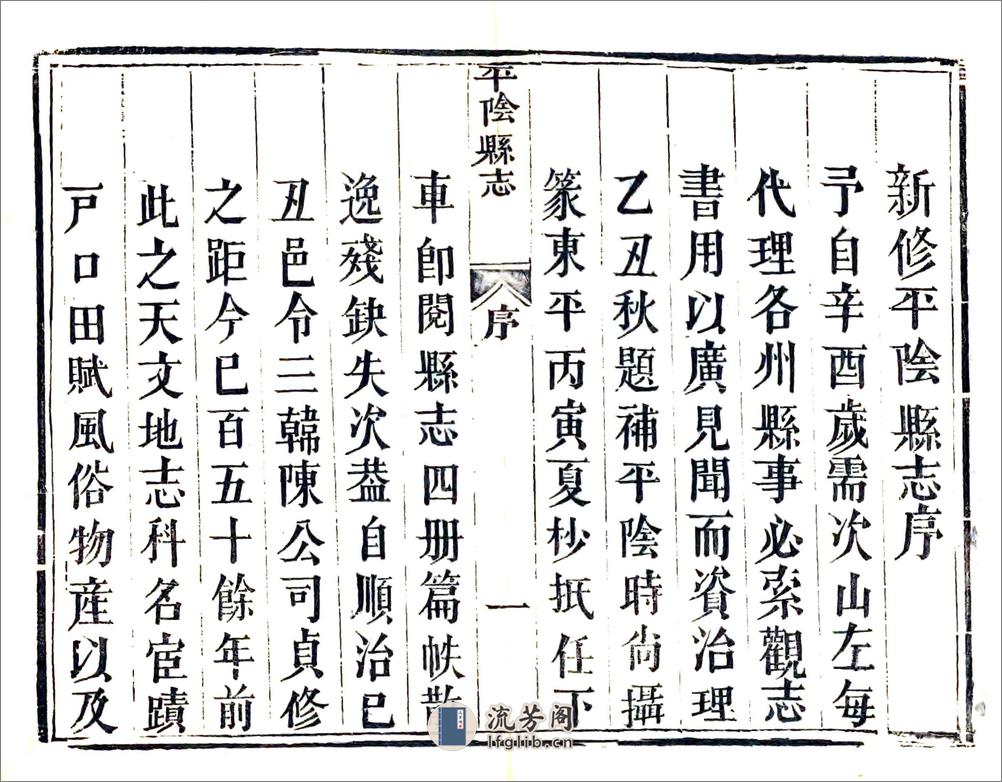 新修平陰縣志序
予自辛酉歲需次山左每
代理各州縣事必索觀志
書用以廣見聞而資治理
乙丑秋題補平陰時尙攝
篆東平丙寅夏杪抵任下
平陰縣志
序
一
車卽閱縣志四册篇帙散
逸殘缺失次葢自順治巳
丑邑令三韓陳公司貞修
之距今巳百五十餘年前
此之天文地志科名宦蹟
戸口田賦風俗物産以及
流芳阁
lfglib.cn